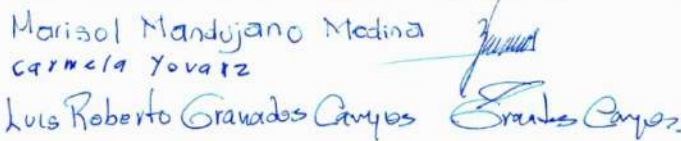 Marisol Mandujano Medina
Carmela Yovarz
Luis Roberto Granados Campos Granados Campos